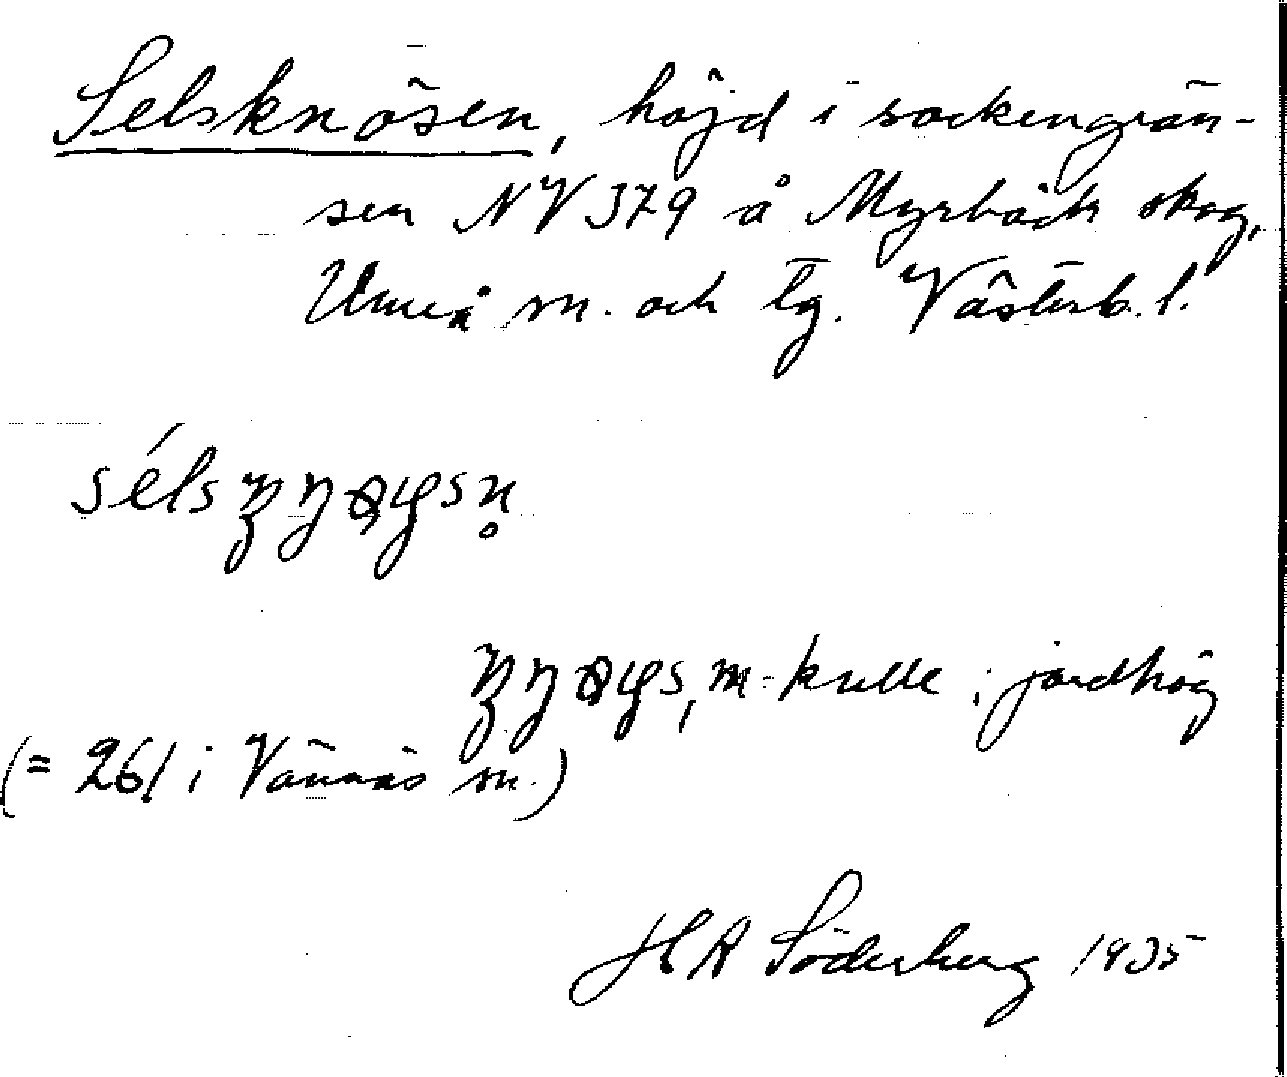 Selsknösen, höjd i sockengrän-
sen NV 379 å Myrbäck skog,
Umeå sn. och tg. Västerb. l.
séls
m = kulle, jordhög
(= 261 i Vännäs sn.)
H A Söderberg 1935